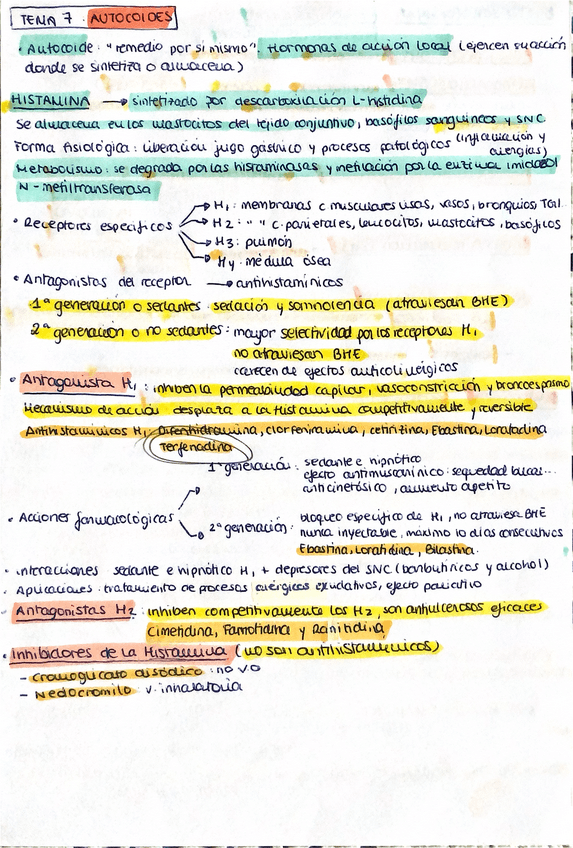 TEMA 7. AUTOCOIDES
• Autocoide: "remedio por si mismo". Hormonas de acción local (ejercen su acción
donde se sintetiza o almacena)
HISTAMINA → sintetizado por descarboxilación L-histidina
Se almacena en los mastocitos del tejido conjuntivo, basófilos sanguineos y SNC
Forma fisiológica: liberación jugo gástrico y procesos patológicos (inflamación y alergias)
Metabolismo: se degrada por las histaminasas y metilación por la enzima imidazol
N-metiltransferasa
• Receptores específicos
H1: membranas c musculares lisas, vasos, bronquios
H2: " " c. parietales, leucocitos, mastocitos, basófilos
H3: pulmón
H4: médula ósea
• Antagonistas del receptor → antihistamínicos
1ª generación o sedantes: sedación y somnolencia (atraviesan BHE)
2ª generación o no sedantes: mayor selectividad por los receptores H1
no atraviesan BHE
carecen de efectos anticolinérgicos
• Antagonista H1: inhiben la permeabilidad capilar, vasoconstricción y broncoespasmo
Mecanismo de acción desplaza a la histamina competitivamente y reversible
Antihistamínicos H1: Difenhidramina, clorfeniramina, cetirizina, Ebastina, Loratadina
Terfenadina
• Acciones farmacológicas
1ª generación: sedante e hipnótico
efecto antimuscarínico: sequedad bucal...
anticinetósico, aumento apetito
2ª generación: bloqueo específico de H1, no atraviesa BHE
nunca inyectable, máximo 10 días consecutivos
Ebastina, Loratidina, Bilastina.
• Interacciones: sedante e hipnótico H1 + depresores del SNC (barbitúricos y alcohol)
• Aplicaciones: tratamiento de procesos alérgicos exudativos, efecto paliativo
• Antagonistas H2: inhiben competitivamente los H2, son antiulcerosos eficaces
Cimetidina, Famotidina y Ranitidina
• Inhibidores de la Histamina (no son antihistamínicos)
- Cromoglicato disódico: no VO
- Nedocromilo: v. inhalatoria